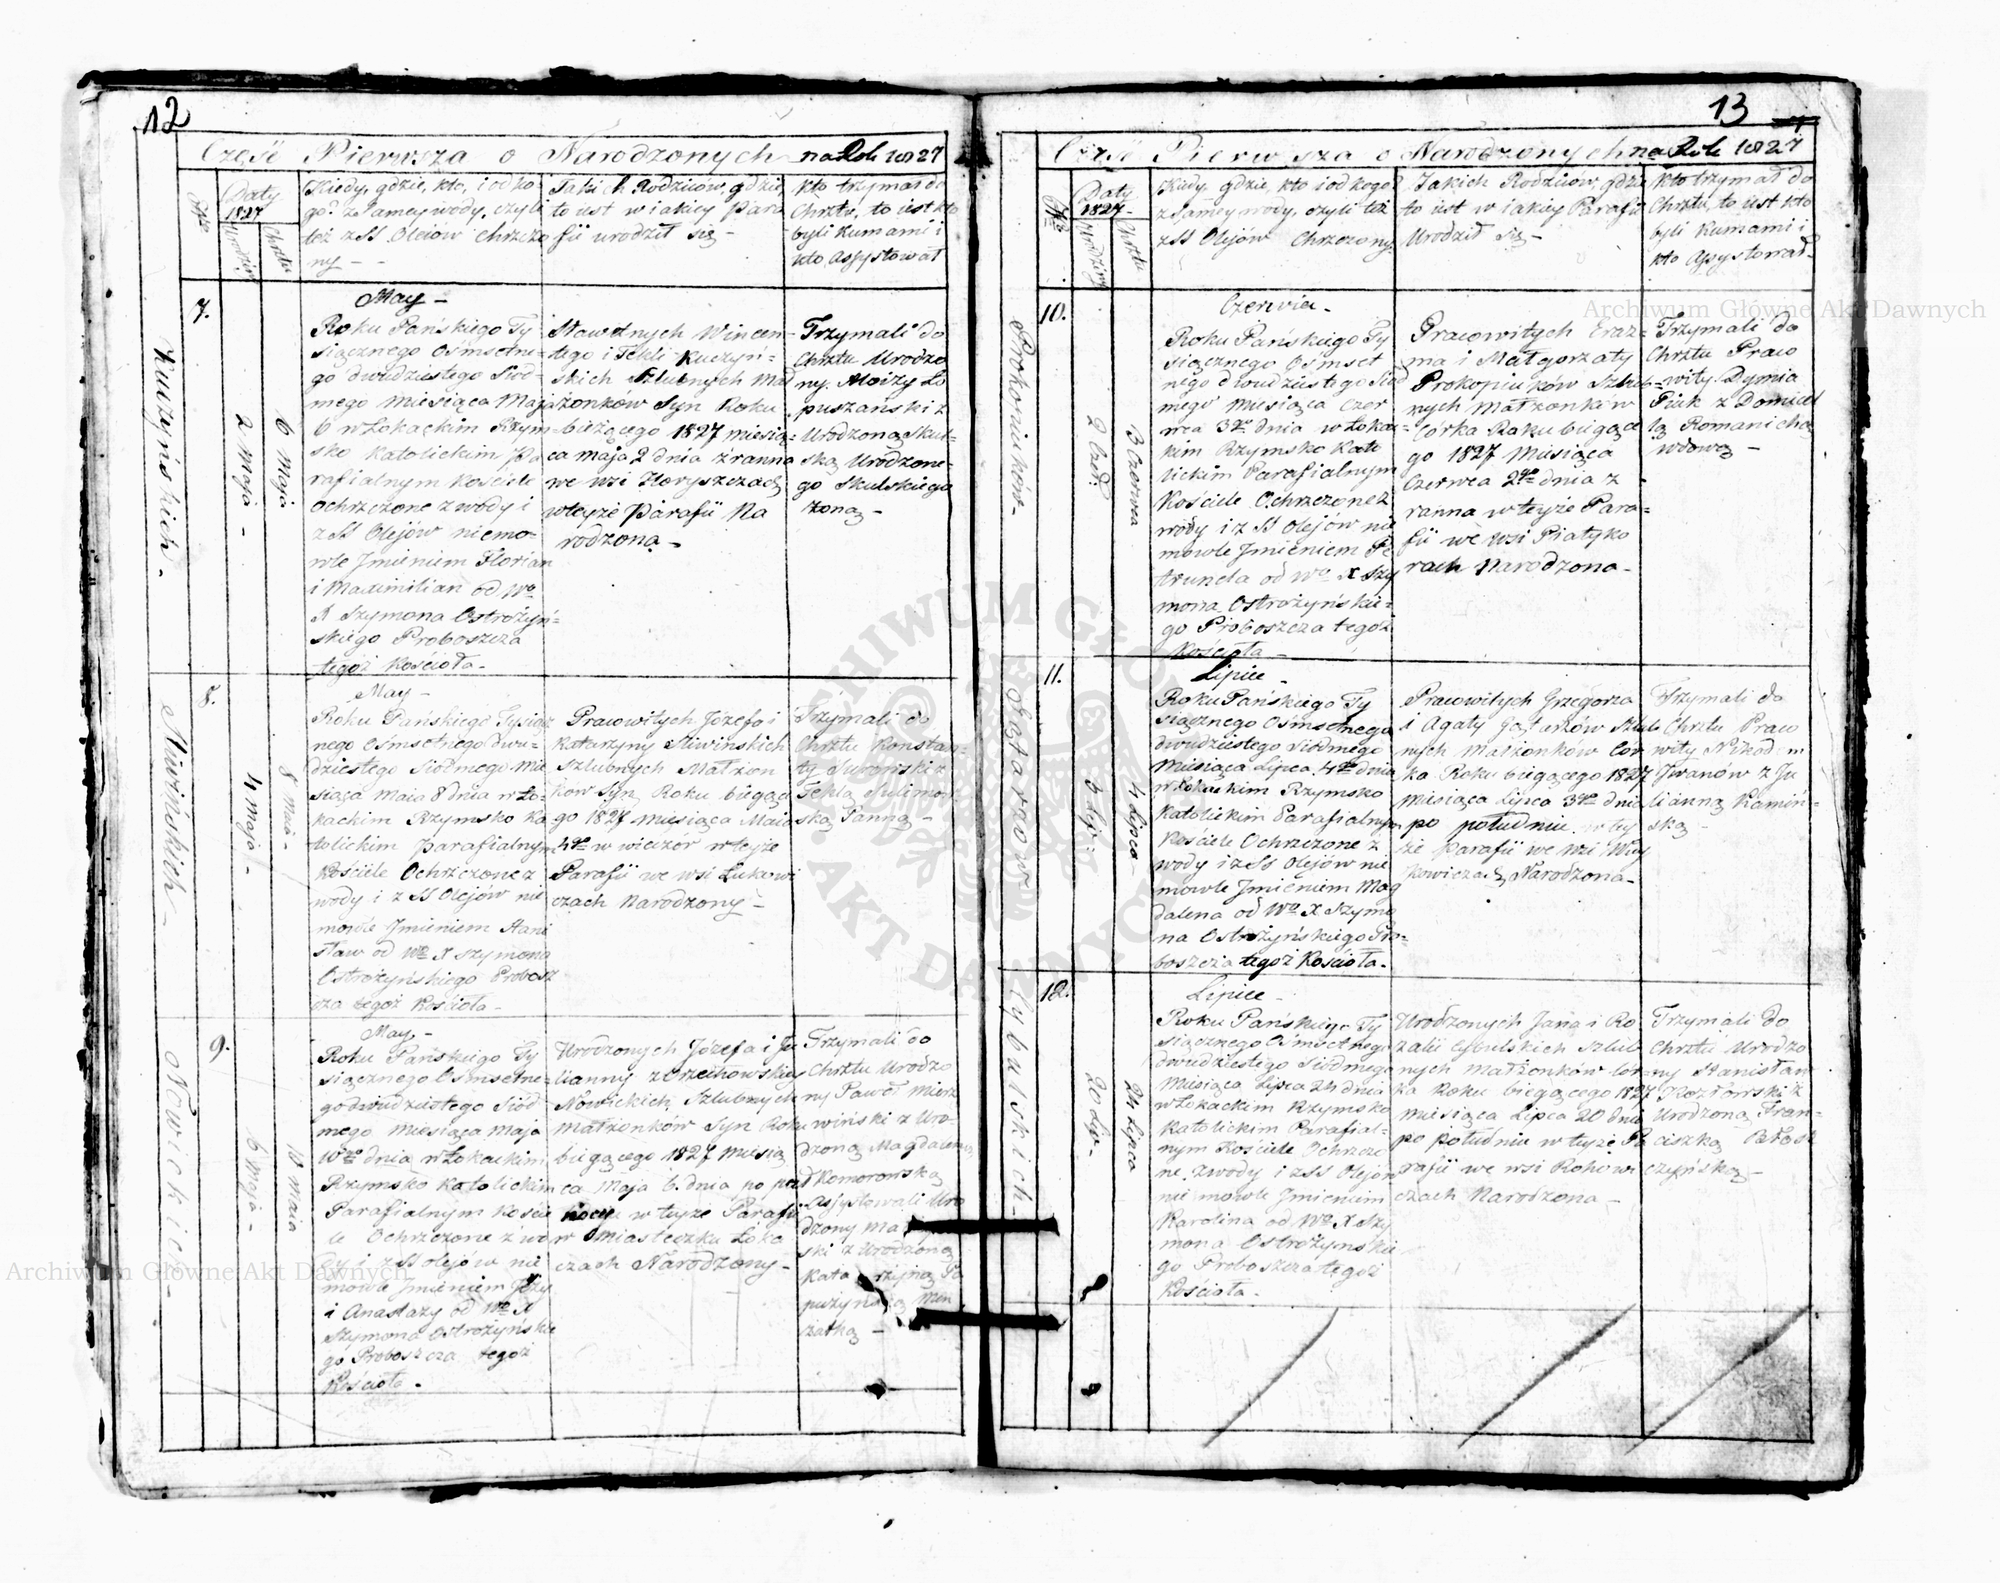 12
Część Pierwsza o Narodzonych na Rok 1827
Nro
Daty
1827
Urodzin
Chrztu
Kiedy, gdzie, kto, i od ko-
go? z samey wody, czyli
też z SS Olejów Chrzczo
ny -
Takich Rodziców, gdzie,
to iest w iakiey Para
fii urodził się -
Kto trzymał do
Chrztu, to iest kto
byli Kumami i
kto Assystował
Kuczyńskich.
7.
2 Maja -
6 Maja
May -
Roku Pańskiego Ty
siącznego Ośmsetne-
go dwudziestego Siód-
mego Miesiąca Maja
6 w Łokackim Rzym
sko Katolickim Pa
rafialnym Kościele
Ochrzczone z wody i
z SS Olejów niemo-
wle Jmieniem Florian
i Maximilian od Wo
X Szymona Ostrożyń-
skiego Proboszcza
tegoż Kościoła -
Sławetnych Wincen-
tego i Tekli Kuczyń-
skich Szlubnych Mał
żonków Syn Roku
bieżącego 1827 miesią-
ca Maja 2 dnia z ranna
we wsi Horyszczach
w teyże Parafii Na
rodzoną -
Trzymali do
Chrztu Urodzo
ny Aloizy Ło
puszański z
Urodzoną Skul-
ską Urodzone-
go Skulskiego
żoną -
Niwińskich -
8.
4 Maja -
8 Maia -
May -
Roku Pańskiego Tysiącz
nego Ośmsetnego dwu-
dziestego Siódmego Mie
siąca Maia 8 dnia w Ło-
kackim Rzymsko Ka
tolickim Parafialnym
Kościele Ochrzczone z
wody i z SS Olejów nie
mowle Jmieniem Stani
sław od Wo X Szymona
Ostrożyńskiego Probosz
cza tegoż Kościoła -
Pracowitych Józefa i
Katarzyny Niwińskich
Szlubnych Małżon
ków Syn Roku biegące
go 1827 Miesiąca Maia
4go w wieczór w teyże
Parafii we wsi Łukowi
czach Narodzony -
Trzymali do
Chrztu Konstan-
ty z
Teklą
ską Panną -
Nowickich -
9.
6 Maja -
10 Maia
May -
Roku Pańskiego Ty
siącznego Ośmsetne-
go dwudziestego Siód-
mego Miesiąca Maja
10go dnia w Łokackim
Rzymsko Katolickim
Parafialnym Koście
le Ochrzczone z wo
dy i z SS Olejów nie
mowle Jmieniem
i Anastazy od Wo X
Szymona Ostrożyńskie
go Proboszcza tegoż
Kościoła -
Urodzonych Józefa i Ju
lianny z Orzechowskich
Nowickich, Szlubnych
Małżonków Syn Roku
biegącego 1827 Miesią
ca Maja 6 dnia po
w teyże Parafii
w Miasteczku Łoka
czach Narodzony -
Trzymali do
Chrztu Urodzo
ny Paweł
wiński z Uro-
dzoną Magdaleną
Komorowską
Assystowali Uro
dzony
ski z Urodzoną
13
Część Pierwsza o Narodzonych na Rok 1827
Nro
Daty
1827 -
Urodziny
Chrztu
Kiedy, gdzie, kto i od kogo?
z samey wody, czyli też
z SS Olejów Chrzczony
Jakich Rodziców, gdzie
to iest w iakiey Parafii
Urodził się -
Kto trzymał do
Chrztu, to iest kto
byli Kumami i
kto Assystował -
Prokopiuków -
10.
3 Czerwca
Czerwiec -
Roku Pańskiego Ty
siącznego Ośmset
nego dwudziestego Siód
mego Miesiąca Czer
wca 3go dnia w Łokac-
kim Rzymsko Kato
lickim Parafialnym
Kościele Ochrzczone z
wody i z SS Olejów nie
mowle Jmieniem Pe
trunela od Wo X Szy
mona Ostrożyńskie-
go Proboszcza tegoż
Kościoła -
Pracowitych Eraz-
ma i Małgorzaty
Prokopiuków Szlub-
nych Małżonków
Córka Roku biegące
go 1827 Miesiąca
Czerwca 2go dnia z
ranna w teyże Para-
fii we wsi Piatyko
rach Narodzona -
Trzymali do
Chrztu Praco
wity
z Domicel
lą Romanichą
wdową -
11.
3 Lip:
4 Lipca -
Lipiec -
Roku Pańskiego Ty
siącznego Ośmsetnego
dwudziestego Siódmego
Miesiąca Lipca 4go dnia
w Łokackim Rzymsko
Katolickim Parafialnym
Kościele Ochrzczone z
wody i z SS Olejów nie
mowle Jmieniem Mag
dalena od Wo X Szymo
na Ostrożyńskiego Pro-
boszcza tegoż Kościoła -
Pracowitych Grzegorza
i Agaty Szlub
nych Małżonków Cór
ka Roku biegącego 1827
Miesiąca Lipca 3go dnia
po południu w tey
że Parafii we wsi
Narodzona -
Trzymali do
Chrztu Praco
wity
Jwanów z Ju
lianną Kamiń-
ską -
Cybulskich -
12.
20 Lip -
24 Lipca
Lipiec -
Roku Pańskiego Ty
siącznego Ośmsetnego
dwudziestego Siódmego
Miesiąca Lipca 24 dnia
w Łokackim Rzymsko
Katolickim Parafial-
nym Kościele Ochrzczo
ne z wody i z SS Olejów
niemowle Jmieniem
Karolina od Wo X Szy
mona Ostrożyńskie
go Proboszcza tegoż
Kościoła -
Urodzonych Jana i Ro
zalii Cybulskich Szlub
nych Małżonków Cór-
ka Roku biegącego 1827
Miesiąca Lipca 20 dnia
po południu w teyże Pa
rafii we wsi Rohowi
czach Narodzona -
Trzymali do
Chrztu Urodzo
ny Stanisław
Kozłowski z
Urodzoną Fran-
ciszką
Archiwum Główne Akt Dawnych
Archiwum Główne Akt Dawnych
ARCHIWUM GŁÓWNE AKT DAWNYCH